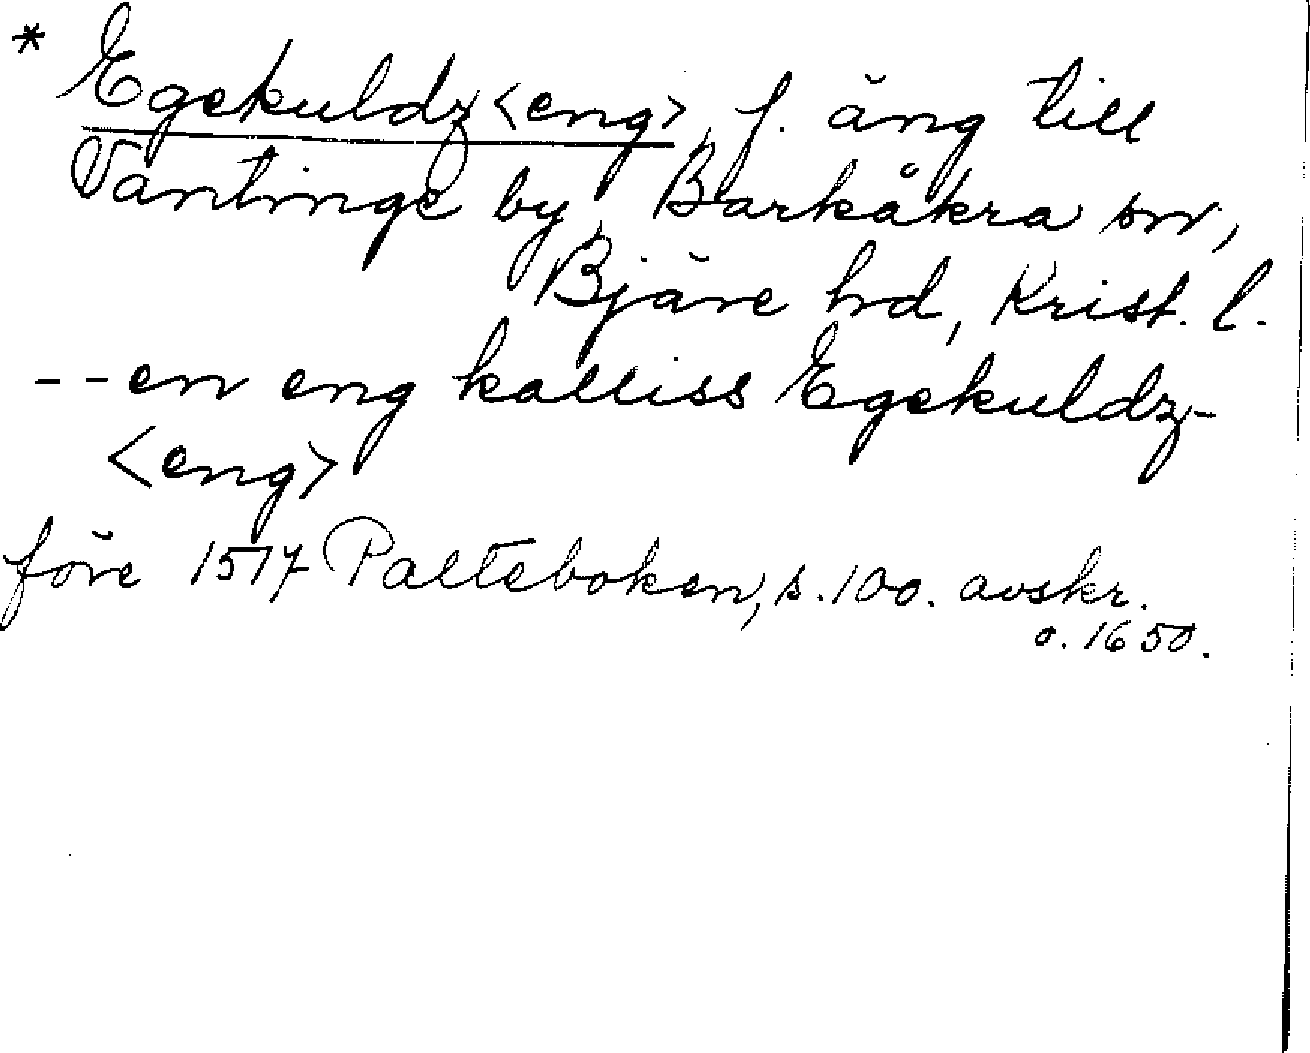 * Egekuldz<eng>, f. äng till
Vantinge by, Barkåkra sn,
Bjäre hd, Krist. l.
-- en eng kalliss Egekuldz-
<eng>
före 1517 Palteboken, s. 100. avskr.
o. 1650.